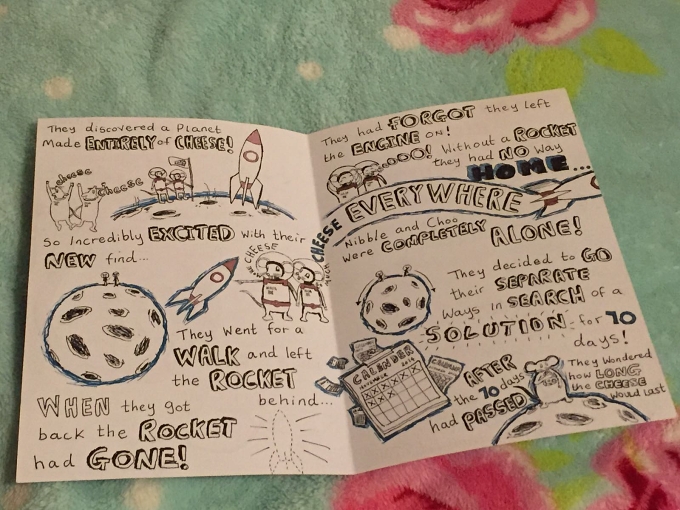 They discovered a Planet
Made ENTIRELY of CHEESE!
cheese
cheese
So Incredibly EXCITED with their
NEW find...
CHEESE
They went for a
WALK and left
the ROCKET
behind...
WHEN they got
back the ROCKET
had GONE!
They had FORGOT they left
the ENGINE on!
OOO! Without a ROCKET
they had NO way
HOME...
CHEESE EVERYWHERE
Nibble and Choo
were COMPLETELY ALONE!
They decided to GO
their SEPARATE
ways in SEARCH of a
SOLUTION for 10
days!
CALENDER
AFTER
the 10 days
had PASSED
They Wondered
how LONG
the CHEESE
would last